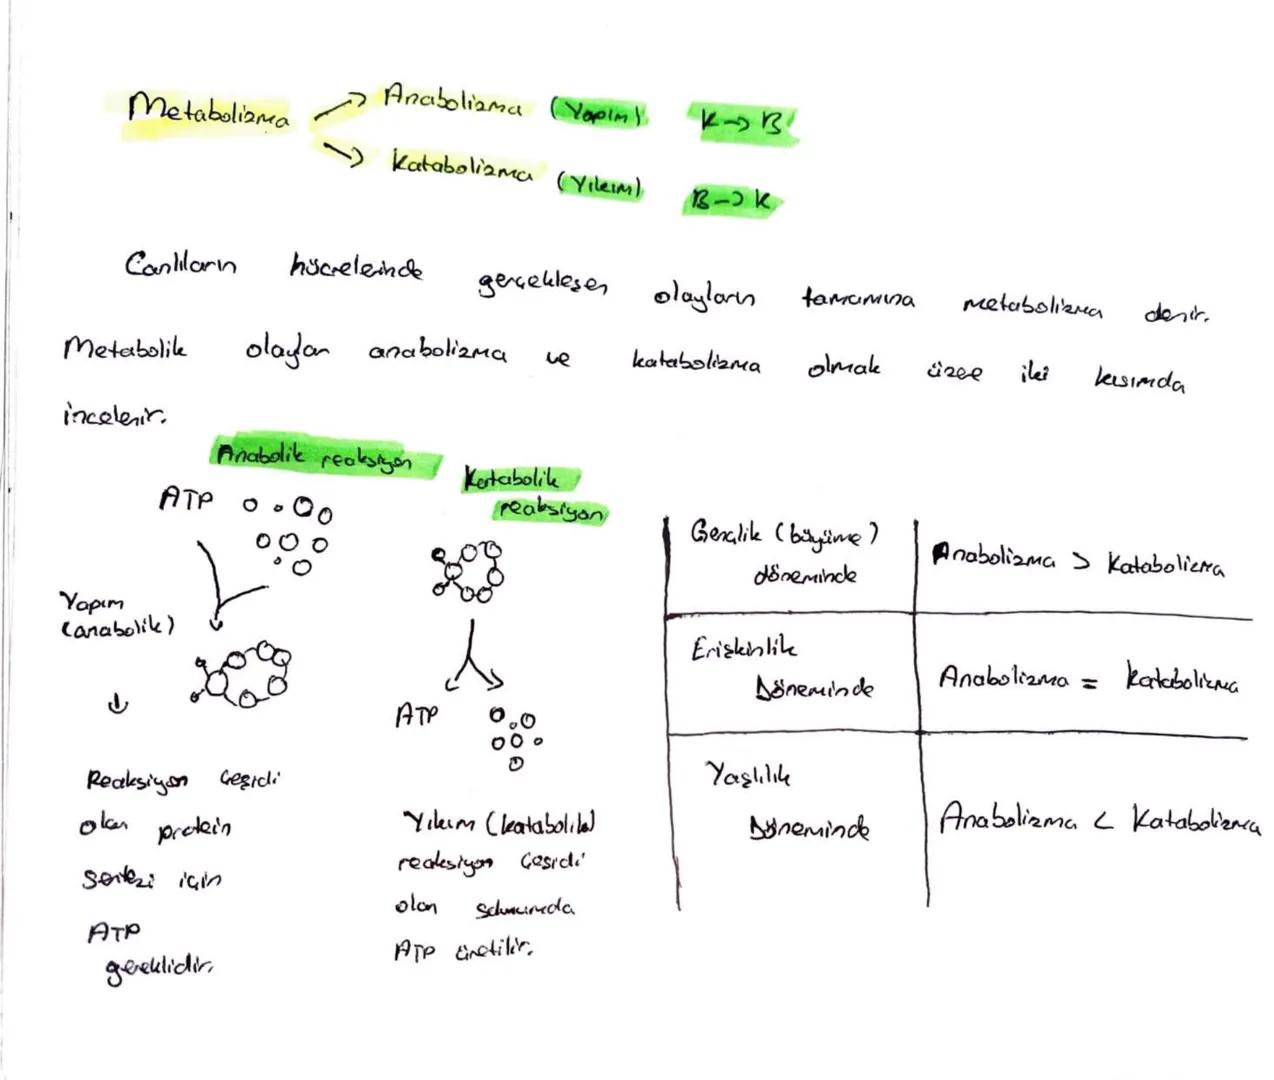 Metabolizma
Anabolizma (Yapım) K→B
Katabolizma (Yıkım) B→K
Canlıların hücrelerinde gerçekleşen olayların tamamına metabolizma denir.
Metabolik olaylar anabolizma ve katabolizma olmak üzere iki kısımda
incelenir.
Anabolik reaksiyon
ATP
Yapım
(anabolik)
Reaksiyon çeşidi
olan protein
sentezi için
ATP
gereklidir.
Katabolik
reaksiyon
ATP
Yıkım (katabolik)
reaksiyon çeşidi
olan solunumda
ATP üretilir.
Gençlik (büyüme)
döneminde
Anabolizma > Katabolizma
Erişkinlik
Döneminde
Anabolizma = Katabolizma
Yaşlılık
Döneminde
Anabolizma < Katabolizma